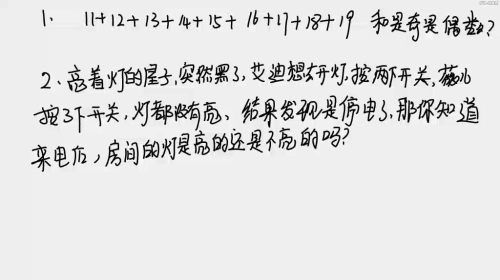 1. 11+12+13+14+15+16+17+18+19 和是奇是偶数?
2、亮着灯的屋子,突然黑了,艾迪想去开灯,按两下开关,薇儿
按了3下开关,灯都没有亮、结果发现是停电了,那你知道
来电后,房间的灯是亮的还是不亮的吗?